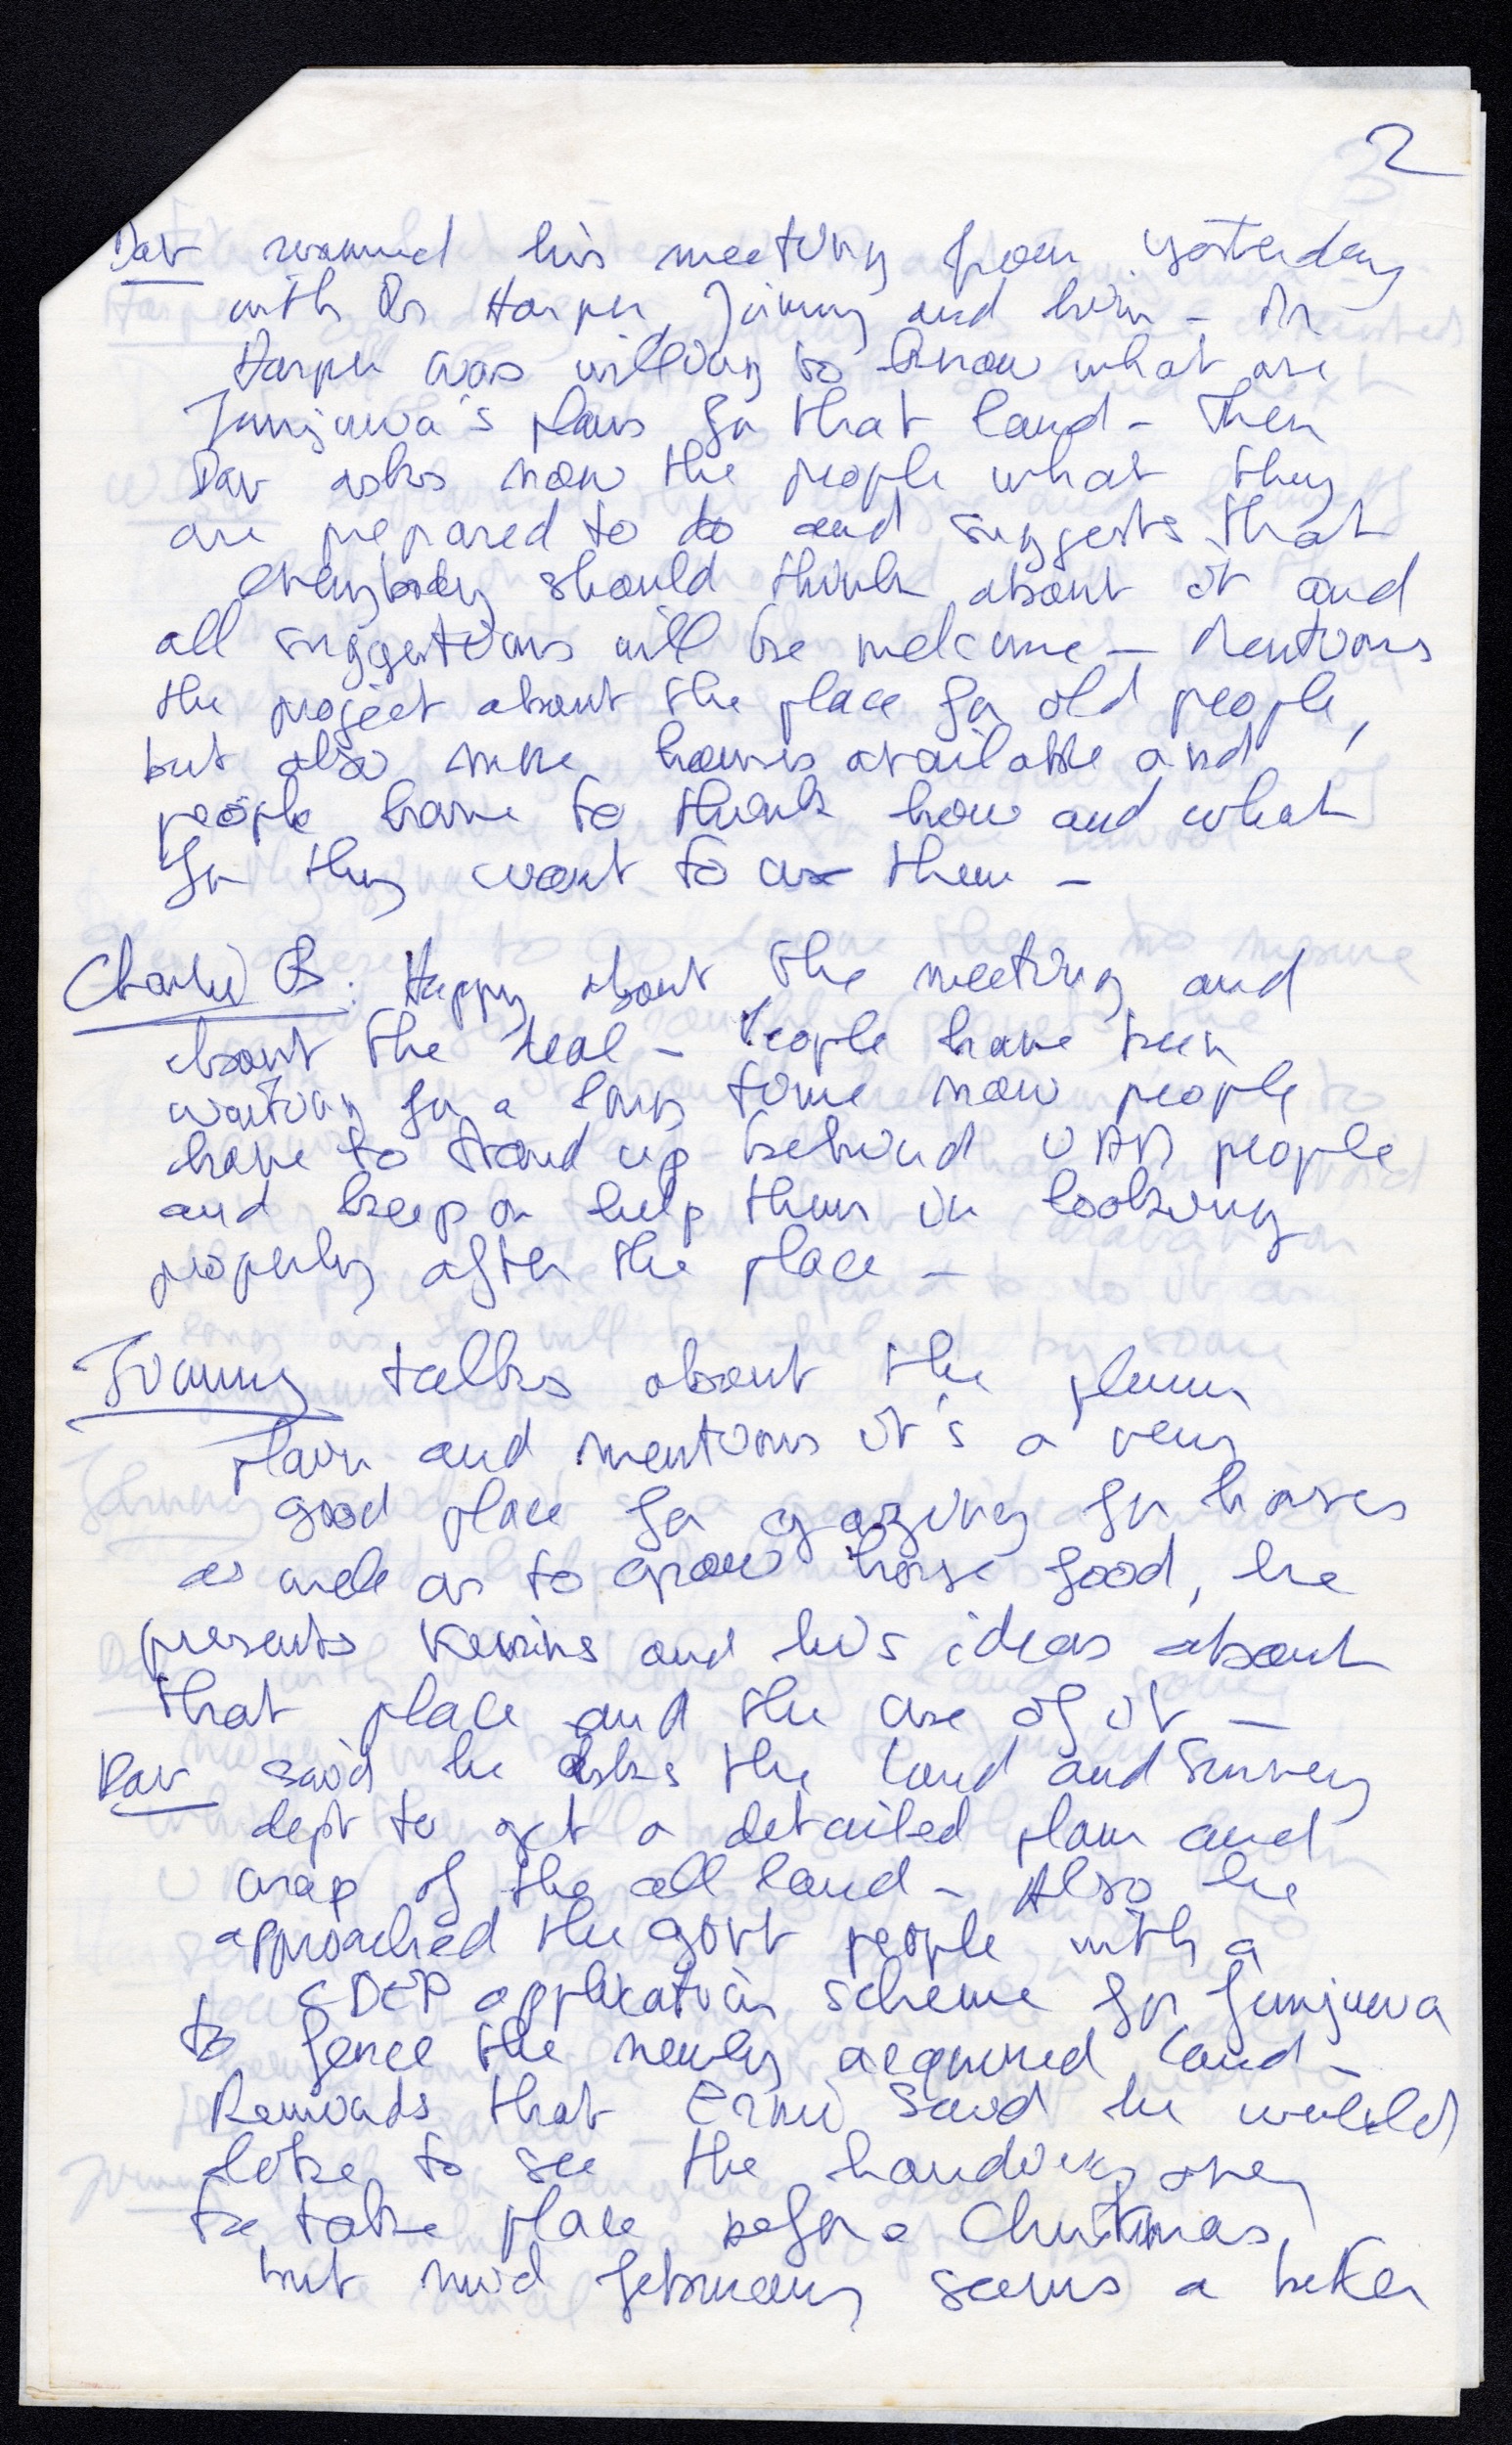 2
Dav resumed his meeting from yesterday
with Dr Harper, Jimmy and him - Dr
Harper was willing to know what are
Junjuwa's plans for that land - Then
Dav asks now the people what they
are prepared to do and suggests that
everybody should think about it and
all suggestions will be welcome - Mentions
the project about the place for old people,
but also more houses available and
people have to think how and what
for they want to use them -
Charlie B: Happy about the meeting and
about the deal - People have been
waiting for a long time now people
have to stand up behind people
and keep on help them in looking
properly after the place -
Jimmy talks about the
plain and mentions it's a very
good place for grazing for horses
as well as to grow horse food, he
presents Kevins and his ideas about
that place and the use of it -
Dav said he asks the land and Survey
dept to get a detailed plan and
map of the all land - Also he
approached the govt people with a
CDEP application scheme for Junjuwa
to fence the newly acquired land -
Reminds that Ernie said he would
like to see the handing over
to take place before Christmas,
but mid february seems a better